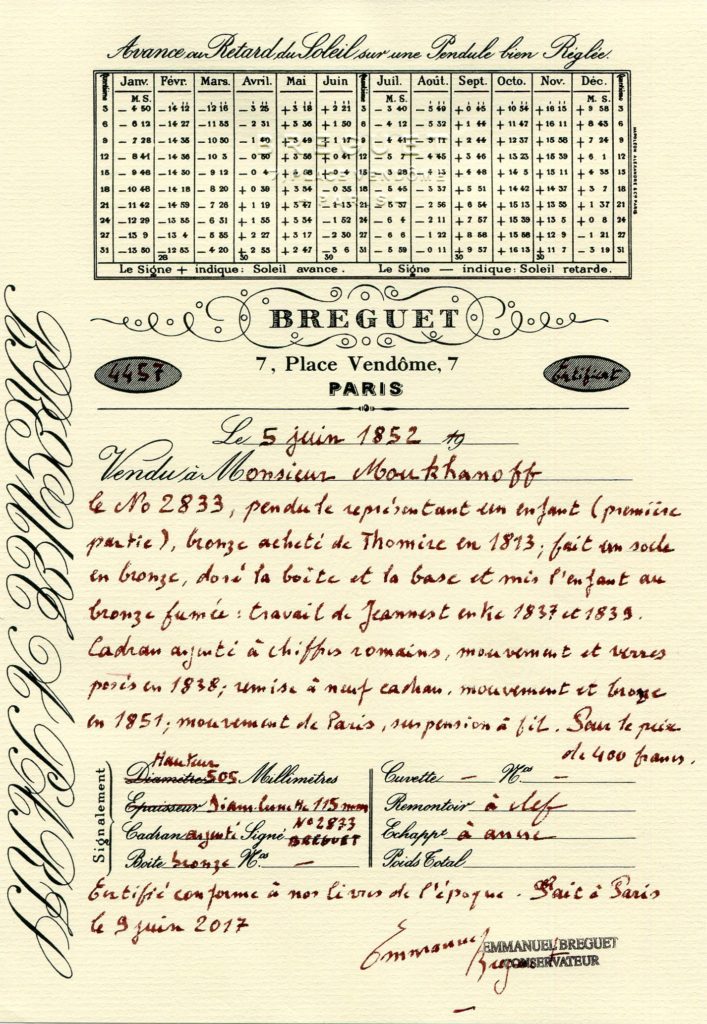 Avance ou Retard du Soleil sur une Pendule bien Réglée.
Quantième Janv. Févr. Mars. Avril. Mai Juin Quantième Juil. Août. Sept. Octo. Nov. Déc. Quantième
M. S. M. S. M. S.
3 – 4 50 – 14 12 – 12 16 – 3 25 + 3 18 + 2 21 3 – 3 40 – 5 49 + 0 45 + 10 54 + 16 15 + 9 58 3
6 – 6 12 – 14 27 – 11 35 – 2 31 + 3 36 + 1 50 6 – 4 12 – 5 32 + 1 44 + 11 47 + 16 11 + 8 43 6
9 – 7 28 – 14 35 – 10 50 – 1 40 + 3 49 9 – 4 41 – 5 11 + 2 44 + 12 37 + 15 58 + 7 24 9
12 – 8 41 – 14 36 – 10 3 – 0 50 + 3 56 + 0 41 12 – 5 7 – 4 45 + 3 46 + 13 23 + 15 39 + 6 1 12
15 – 9 48 – 14 30 – 9 12 15 – 5 28 – 4 13 + 4 48 + 14 5 + 15 11 + 4 35 15
18 – 10 48 – 14 18 – 8 20 + 0 39 + 3 54 – 0 35 18 – 5 45 – 3 37 + 5 51 + 14 42 + 14 37 + 3 7 18
21 – 11 42 – 14 59 – 7 26 + 1 18 + 3 47 – 1 13 21 – 5 37 – 2 56 + 6 54 + 15 13 + 13 56 + 1 37 21
24 – 12 29 – 13 35 – 6 31 + 1 55 + 3 34 – 1 52 24 – 6 4 – 2 11 + 7 57 + 15 39 + 13 5 + 0 8 24
27 – 13 9 – 13 4 – 5 35 + 2 27 + 3 17 – 2 30 27 – 6 6 – 1 22 + 8 58 + 15 58 + 12 6 – 1 21 27
31 – 13 50 – 12 53 – 4 20 + 2 55 + 2 47 – 3 6 31 – 5 59 – 0 11 + 9 57 + 16 13 + 11 7 – 3 19 31
28 30 30 30 30
Le Signe + indique: Soleil avance. Le Signe — indique: Soleil retarde.
BREGUET
7 PLACE VENDÔME
PARIS
BREGUET
7, Place Vendôme, 7
PARIS
4457
Certificat
BREGUET A PARIS
Le 5 juin 1852 19
Vendu à Monsieur Moukhanoff
le No 2833, pendule représentant un enfant (première
partie), bronze acheté de Thomire en 1813; fait un socle
en bronze, doré la boîte et la base et mis l'enfant au
bronze fumée: travail de Jeannest entre 1837 et 1839.
Cadran argenté à chiffres romains, mouvement et verres
posés en 1838; remise à neuf cadran, mouvement et bronze
en 1851; mouvement de Paris, suspension à fil. Pour le prix
de 400 francs.
Signalement
Hauteur
Diamètre 505 Millimètres
Epaisseur Diam. lunette 115 mm
Cadran argenté Signé No 2833 BREGUET
Boite bronze Nos —
Cuvette — Nos —
Remontoir à clef
Echappt à ancre
Poids Total
Certifié conforme à nos livres de l'époque. Fait à Paris
le 9 juin 2017
Emmanuel Breguet
EMMANUEL BREGUET
CONSERVATEUR